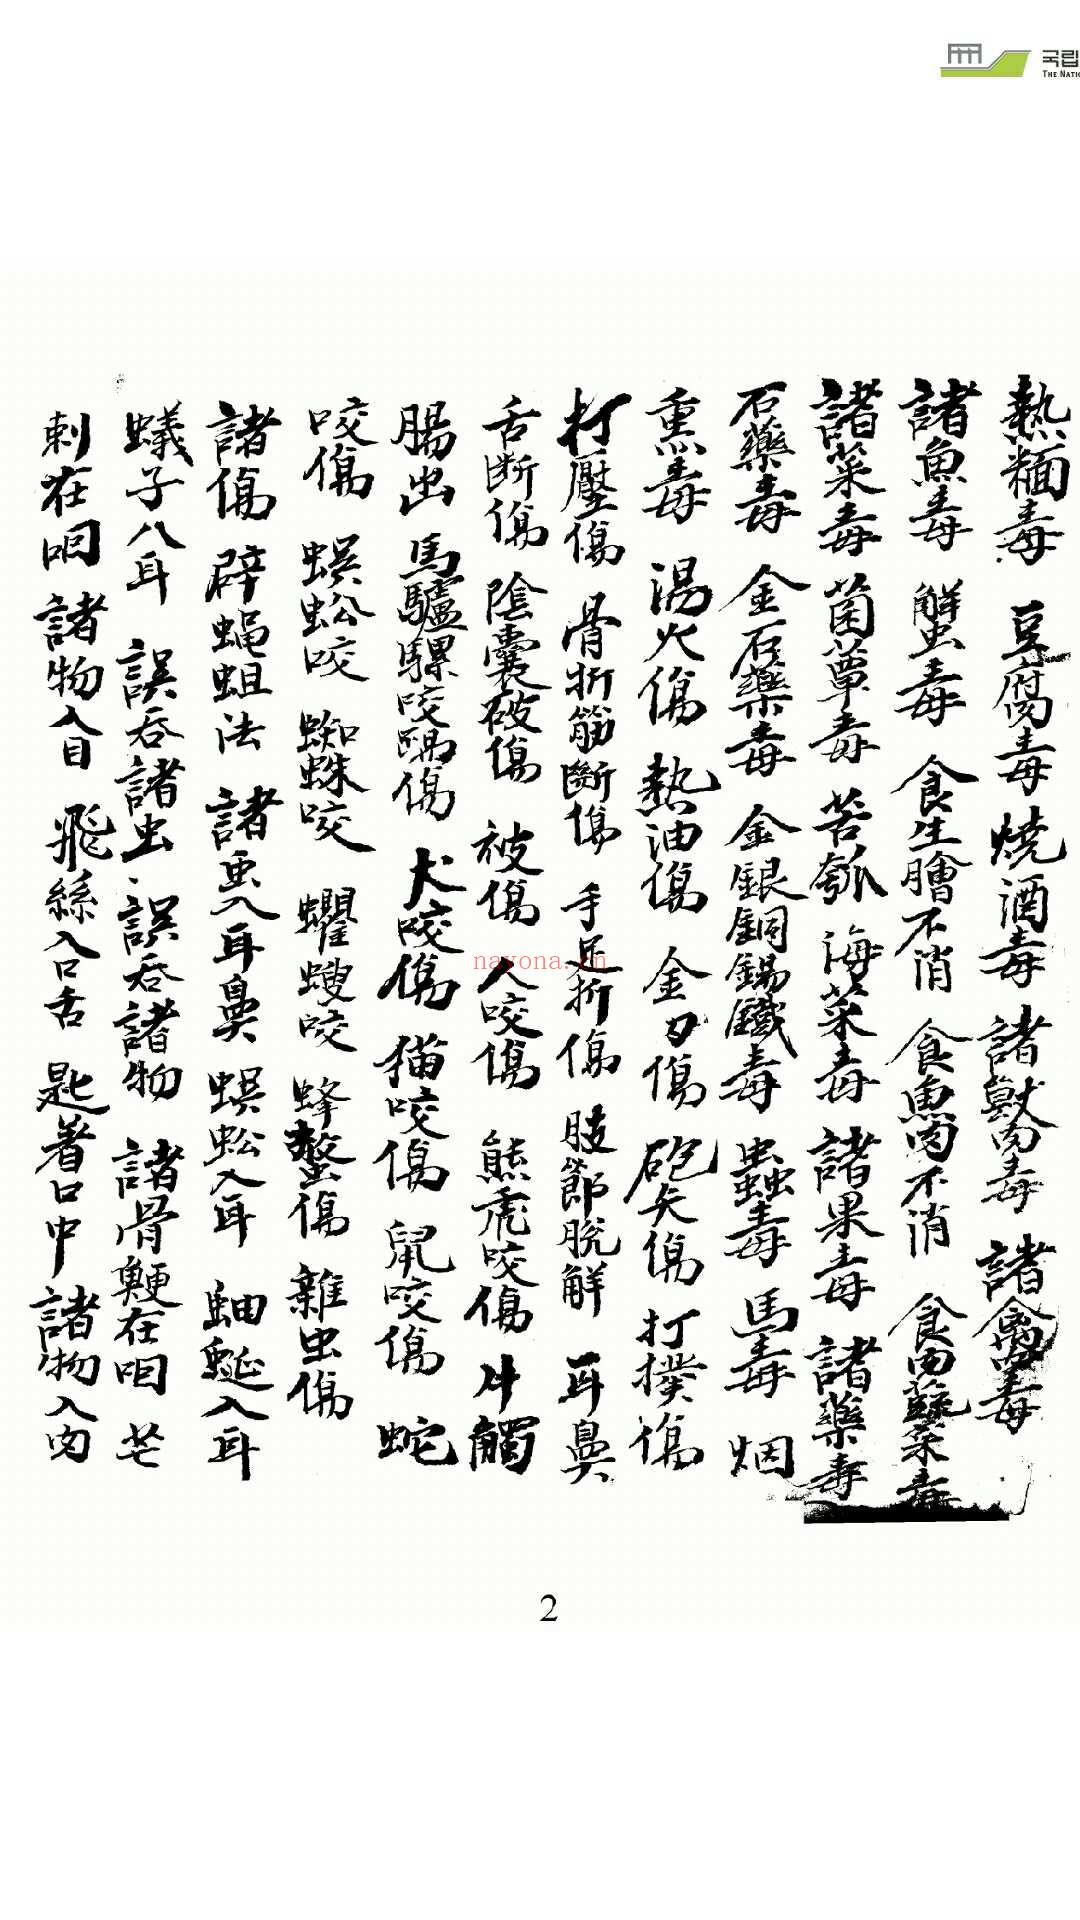 국립
THE NATIO
熱麵毒 豆腐毒 燒酒毒 諸獸肉毒 諸禽肉毒
諸魚毒 蟹毒 食生膾不消 食魚肉不消 食肉蔬菜毒
諸菜毒 菌蕈毒 苦瓠 海菜毒 諸果毒 諸藥毒
石藥毒 金石藥毒 金銀銅錫鐵毒 蟲毒 馬毒 烟
熏毒 湯火傷 熱油傷 金刀傷 砲矢傷 打撲傷
打壓傷 骨折筋斷傷 手足折傷 肢節脫解 耳鼻
舌斷傷 陰囊破傷 被傷 人咬傷 熊虎咬傷 牛觸
腸出 馬驢騾咬踢傷 犬咬傷 猫咬傷 鼠咬傷 蛇
咬傷 蜈蚣咬 蜘蛛咬 蠷螋咬 蜂螫傷 雜虫傷
諸傷 辟蝇蛆法 諸虫入耳鼻 蜈蚣入耳 蚰蜒入耳
蟻子入耳 誤吞諸虫 誤吞諸物 諸骨鯁在咽 芒
刺在咽 諸物入目 飛絲入口舌 匙着口中 諸物入肉
nayona.cn
2